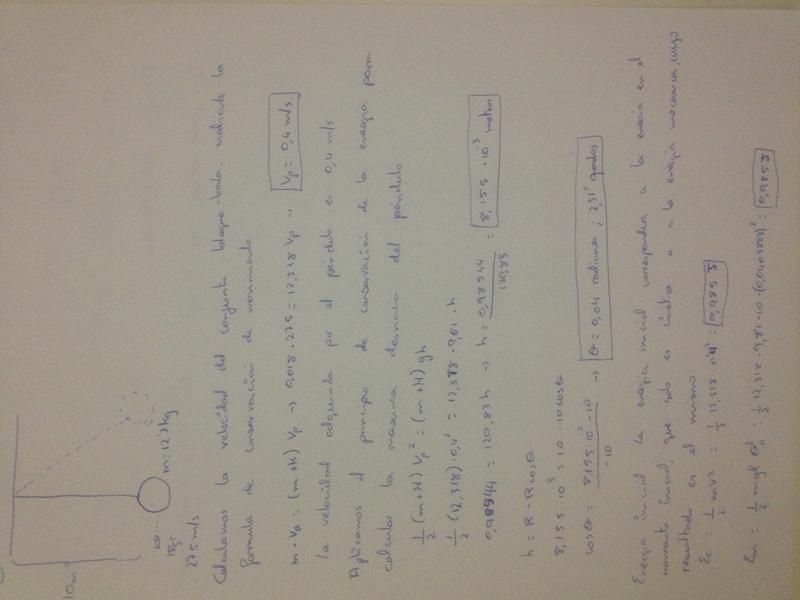 10m
18gr
275 m/s
m = 12'3 kg
Calculamos la velocidad del conjunto bloque-bala mediante la
formula de conservacion de movimiento
m · VB = (m+M) Vp → 0,018 · 275 = 12,318 Vp → Vp = 0,4 m/s.
La velocidad adquirida por el péndulo es 0,4 m/s
Aplicamos el principio de conservacion de la energia para
calcular la maxima desviacion del pendulo
1/2 (m+M) Vp² = (m+M) gh
1/2 (12,318) · 0,4² = 12,318 · 9,81 · h
0,98544 = 120,83 h → h = 0,98544 / 120,83 = 8,155 · 10⁻³ metros
h = R - R cosθ
8,155 · 10⁻³ = 10 - 10 cosθ
cosθ = 8,155 · 10⁻³ - 10 / -10 → θ = 0,04 radianes ; 2,31° grados
Energia inicial: la energia inicial corresponderia a la energia en el
momento inicial, que solo es cinética o a la energia mecanica, cuyo
resultado es el mismo
Ec = 1/2 mv² = 1/2 12,318 · 0,4² = 0,985 J
Em = 1/2 mgl θ₀² = 1/2 12,318 · 9,81 · 10 · (0,0403883)² = 0,985 J